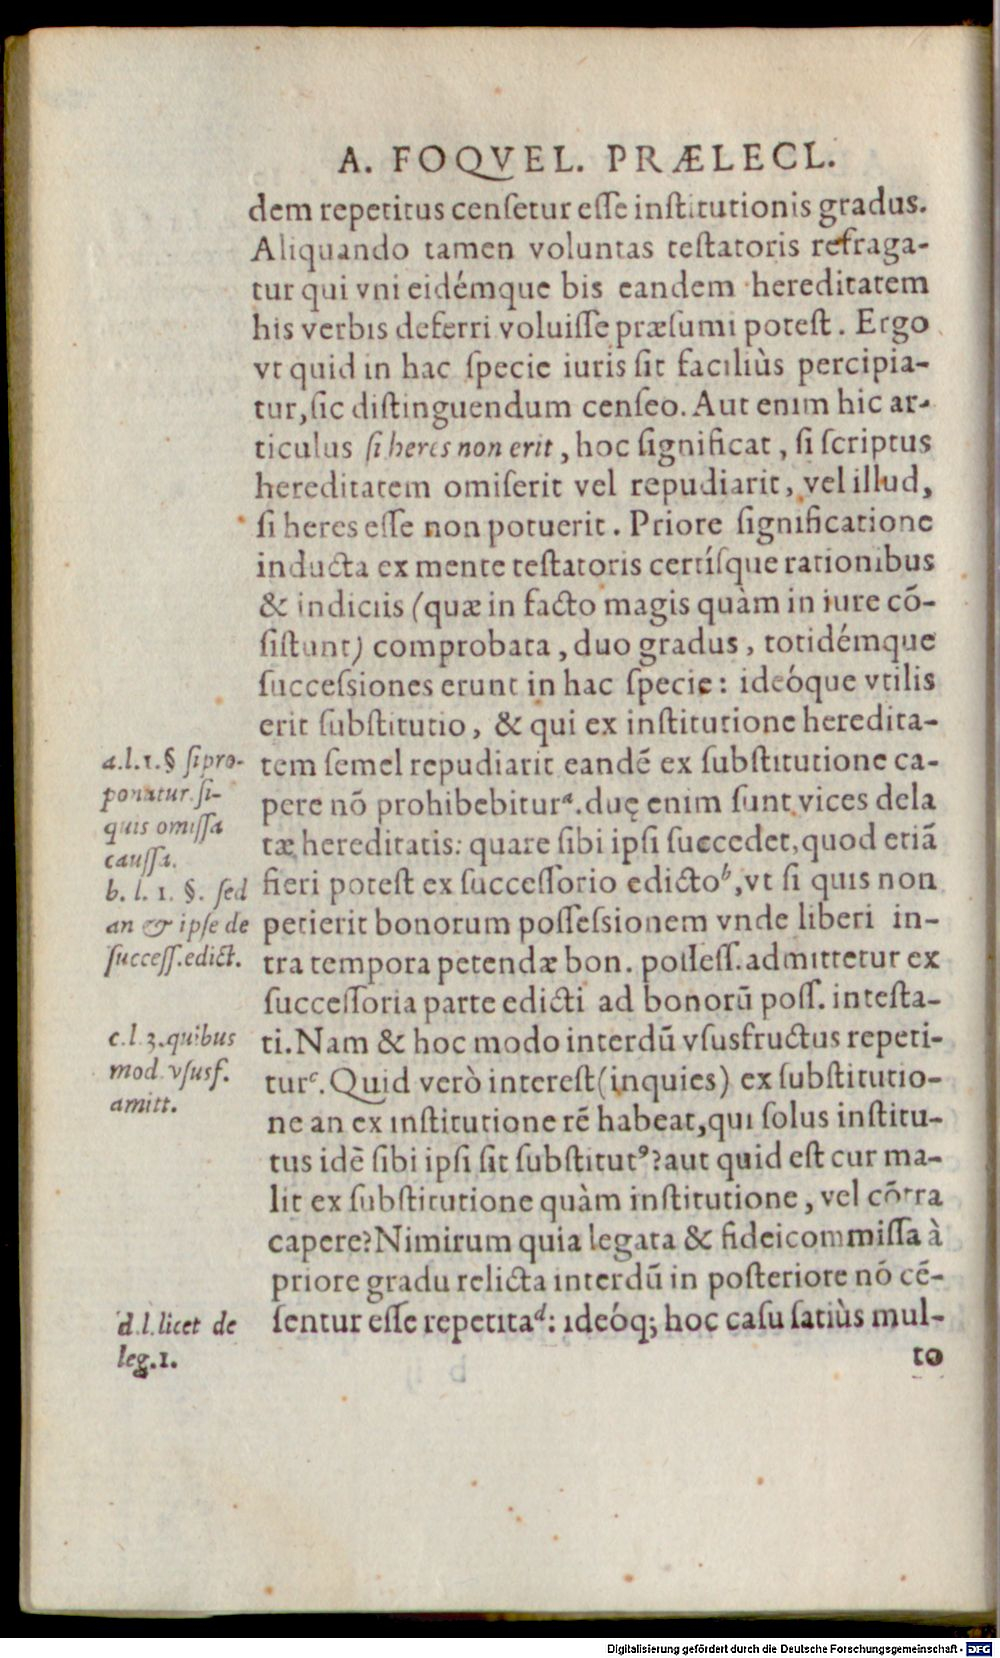 A. FOQVEL. PRÆLECL.
dem repetitus censetur esse institutionis gradus.
Aliquando tamen voluntas testatoris refraga-
tur qui vni eidémque bis eandem hereditatem
his verbis deferri voluisse præsumi potest. Ergo
vt quid in hac specie iuris sit faciliùs percipia-
tur, sic distinguendum censeo. Aut enim hic ar-
ticulus si heres non erit, hoc significat, si scriptus
hereditatem omiserit vel repudiarit, vel illud,
si heres esse non potuerit. Priore significatione
inducta ex mente testatoris certísque rationibus
& indiciis (quæ in facto magis quàm in iure cõ-
sistunt) comprobata, duo gradus, totidémque
successiones erunt in hac specie: ideóque vtilis
erit substitutio, & qui ex institutione heredita-
tem semel repudiarit eandẽ ex substitutione ca-
pere nõ prohibebitur<sup>a</sup>. duę enim sunt vices dela
tæ hereditatis: quare sibi ipsi succedet, quod etiã
fieri potest ex successorio edicto<sup>b</sup>, vt si quis non
petierit bonorum possessionem vnde liberi in-
tra tempora petendæ bon. possess. admittetur ex
successoria parte edicti ad bonorũ poss. intesta-
ti. Nam & hoc modo interdũ vsusfructus repeti-
tur<sup>c</sup>. Quid verò interest (inquies) ex substitutio-
ne an ex institutione rẽ habeat, qui solus institu-
tus idẽ sibi ipsi sit substitutꝰ? aut quid est cur ma-
lit ex substitutione quàm institutione, vel cõtra
capere? Nimirum quia legata & fideicommissa à
priore gradu relicta interdũ in posteriore nõ cẽ-
sentur esse repetita<sup>d</sup>: ideóq; hoc casu satiùs mul-
to
a. l. 1. § si pro-
ponatur. si-
quis omissa
caussa.
b. l. 1. §. sed
an & ipse de
success. edict.
c. l. 3. quibus
mod. vsusf.
amitt.
d. l. licet de
leg. 1.
Digitalisierung gefördert durch die Deutsche Forschungsgemeinschaft - DFG